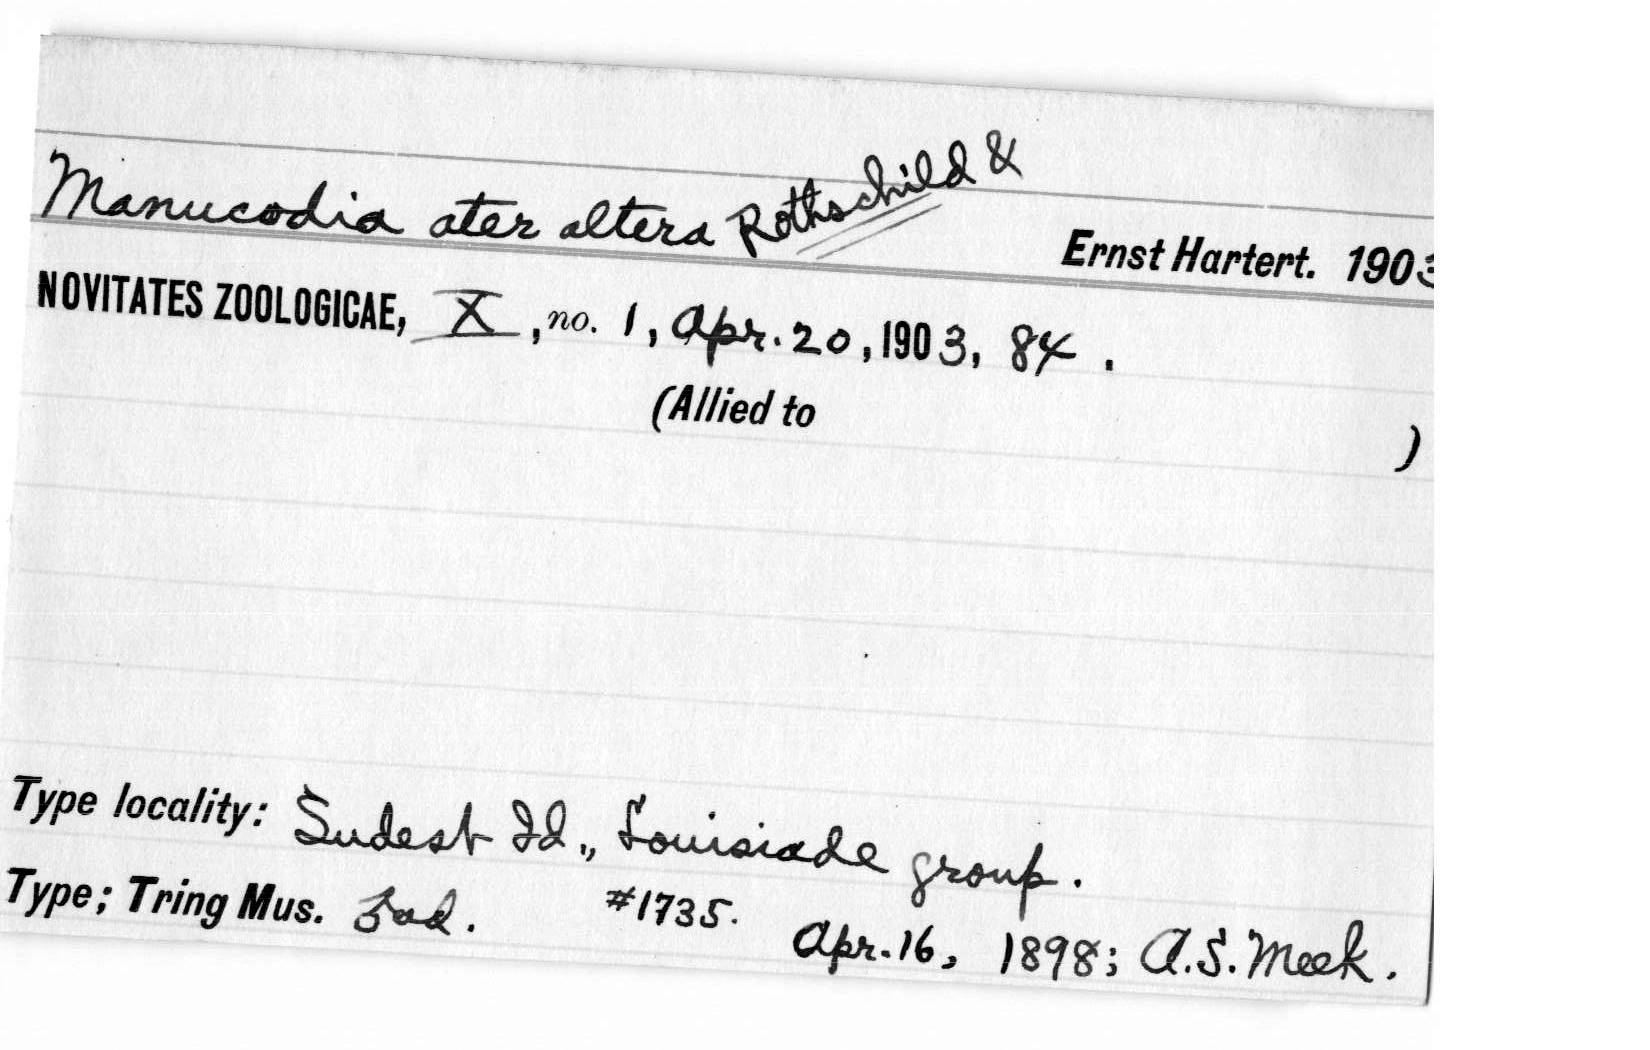 Manucodia ater altera Rothschild & Ernst Hartert. 1903
NOVITATES ZOOLOGICAE, X, no. 1, Apr. 20, 1903, 84.
(Allied to )
Type locality: Sudest Id., Louisiade group.
Type; Tring Mus. ad. #1735. Apr. 16, 1898; A.S. Meek.